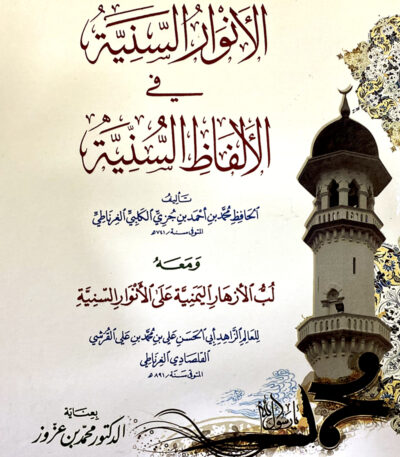 الأنوار السَّنِيَّة
في
الألفاظ السُّنِّيَّة
تأليف
الحافظ محمّد بن أحمد بن جُزيّ الكلبي الغرناطي
المتوفى سنة ٧٤١هـ
ومعه
لُبُّ الأزهار اليمنية على الأنوار السنيّة
للعالم الزاهد أبي الحسن علي بن محمّد بن علي القُرشي
القلصادي الغرناطي
المتوفى سنة ٨٩١هـ
بعناية
الدكتور محمد بن عزوز
يا رسول الله